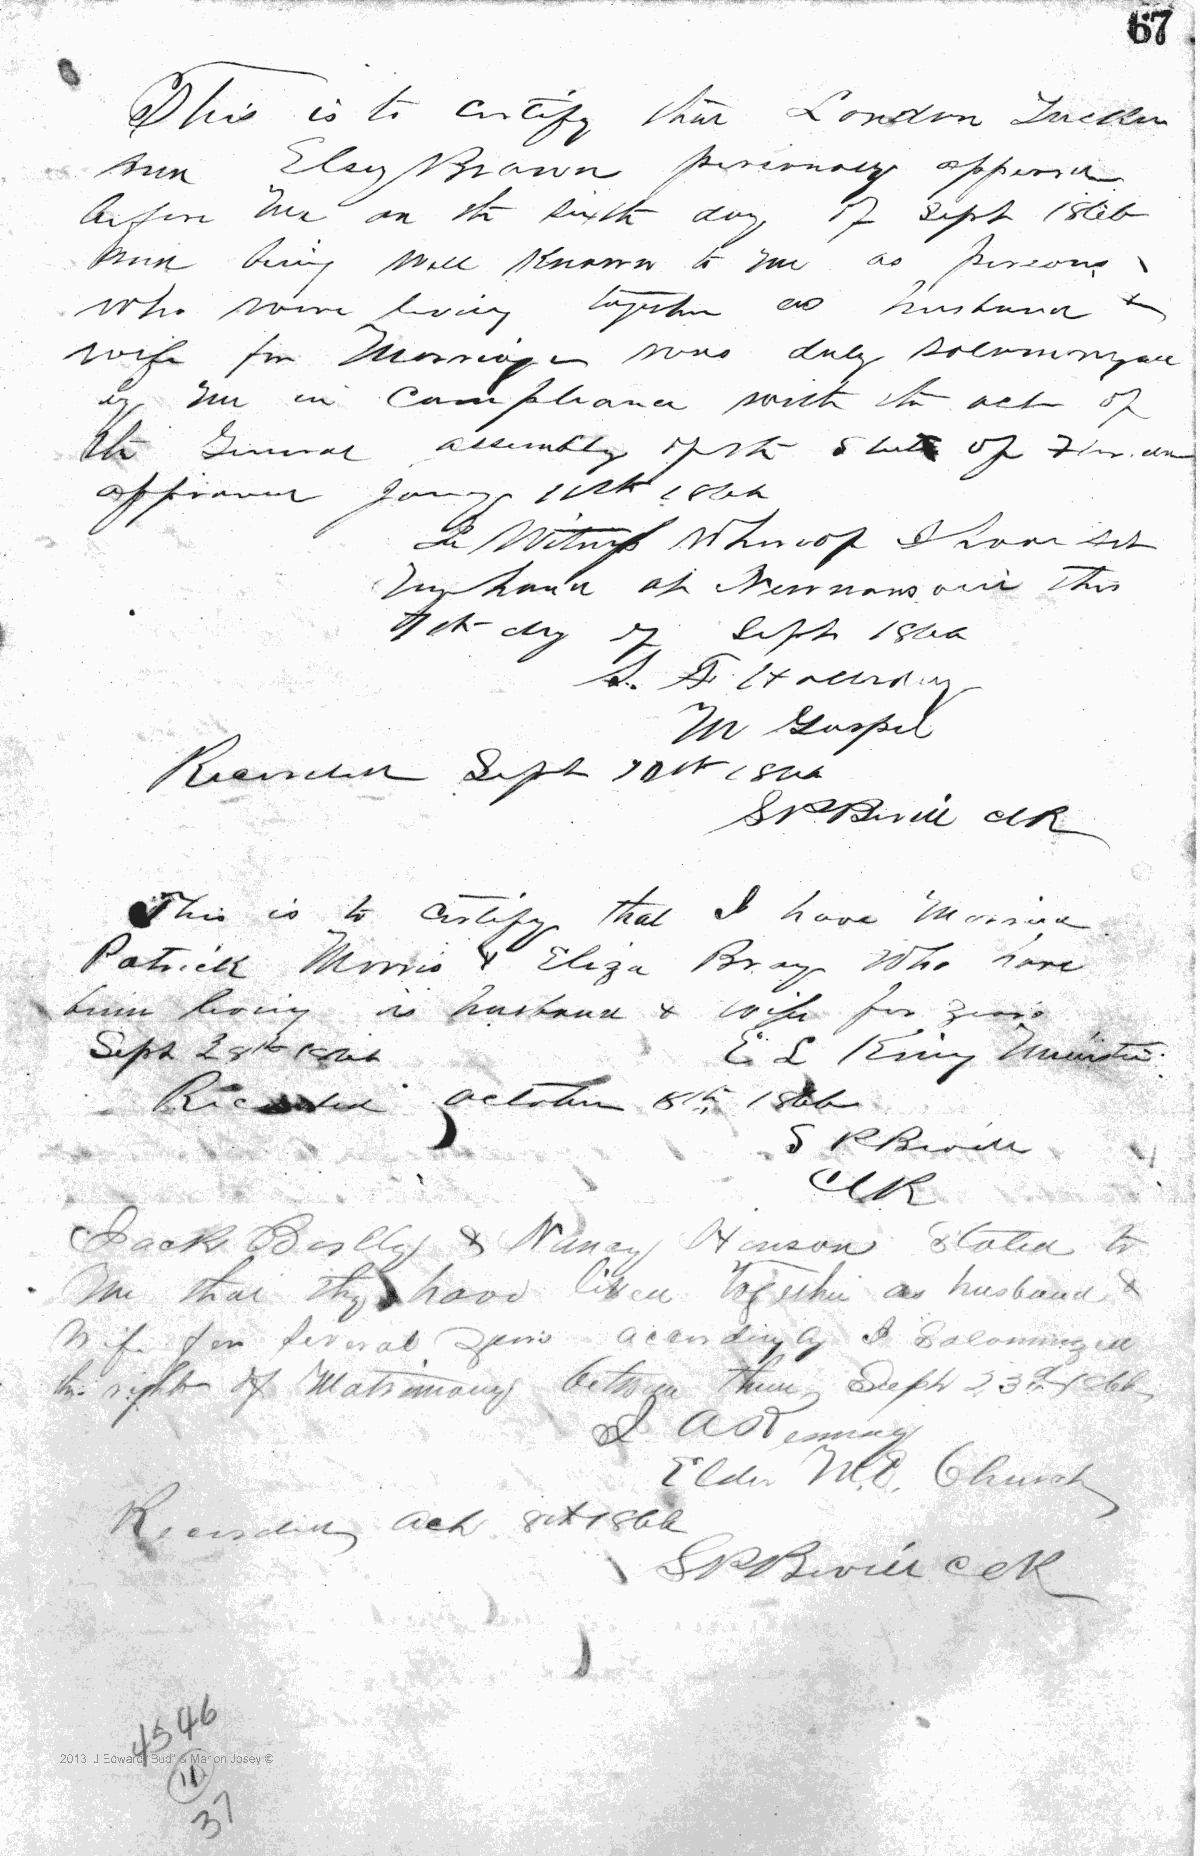 67
This is to certify that London Tucker
and Elsey Brown personally appeared
before me on the sixth day of Sept 1866
and being well known to me as persons
who were living together as husband &
wife for Marriage was duly Solemnized
by me in Compliance with the act of
the General assembly of the State of Florida
approved Jany 11th 1866
In Witness Whereof I have set
my hand at Newnansville this
7th day of Sept 1866
S. F. Halliday
M Gospel
Recorded Sept 10th 1866
S P Bevill Clk
This is to certify that I have Married
Patrick Morris & Eliza Bray Who have
been living as husband & wife for years
Sept 28th 1866 E L King Minister
Recorded October 8th 1866
S P Bevill
Clk
Jack & Nancy Henson Stated to
me that they have lived together as husband &
wife for several years accordingly I Solomnized
the right of Matrimony between them, Sept 23d 1866
Elder M.E. Church
Recorded Oct 8th 1866
S P Bevill Clk
4546
11
37
2013 J Edward "Bud" & Marion Josey ©